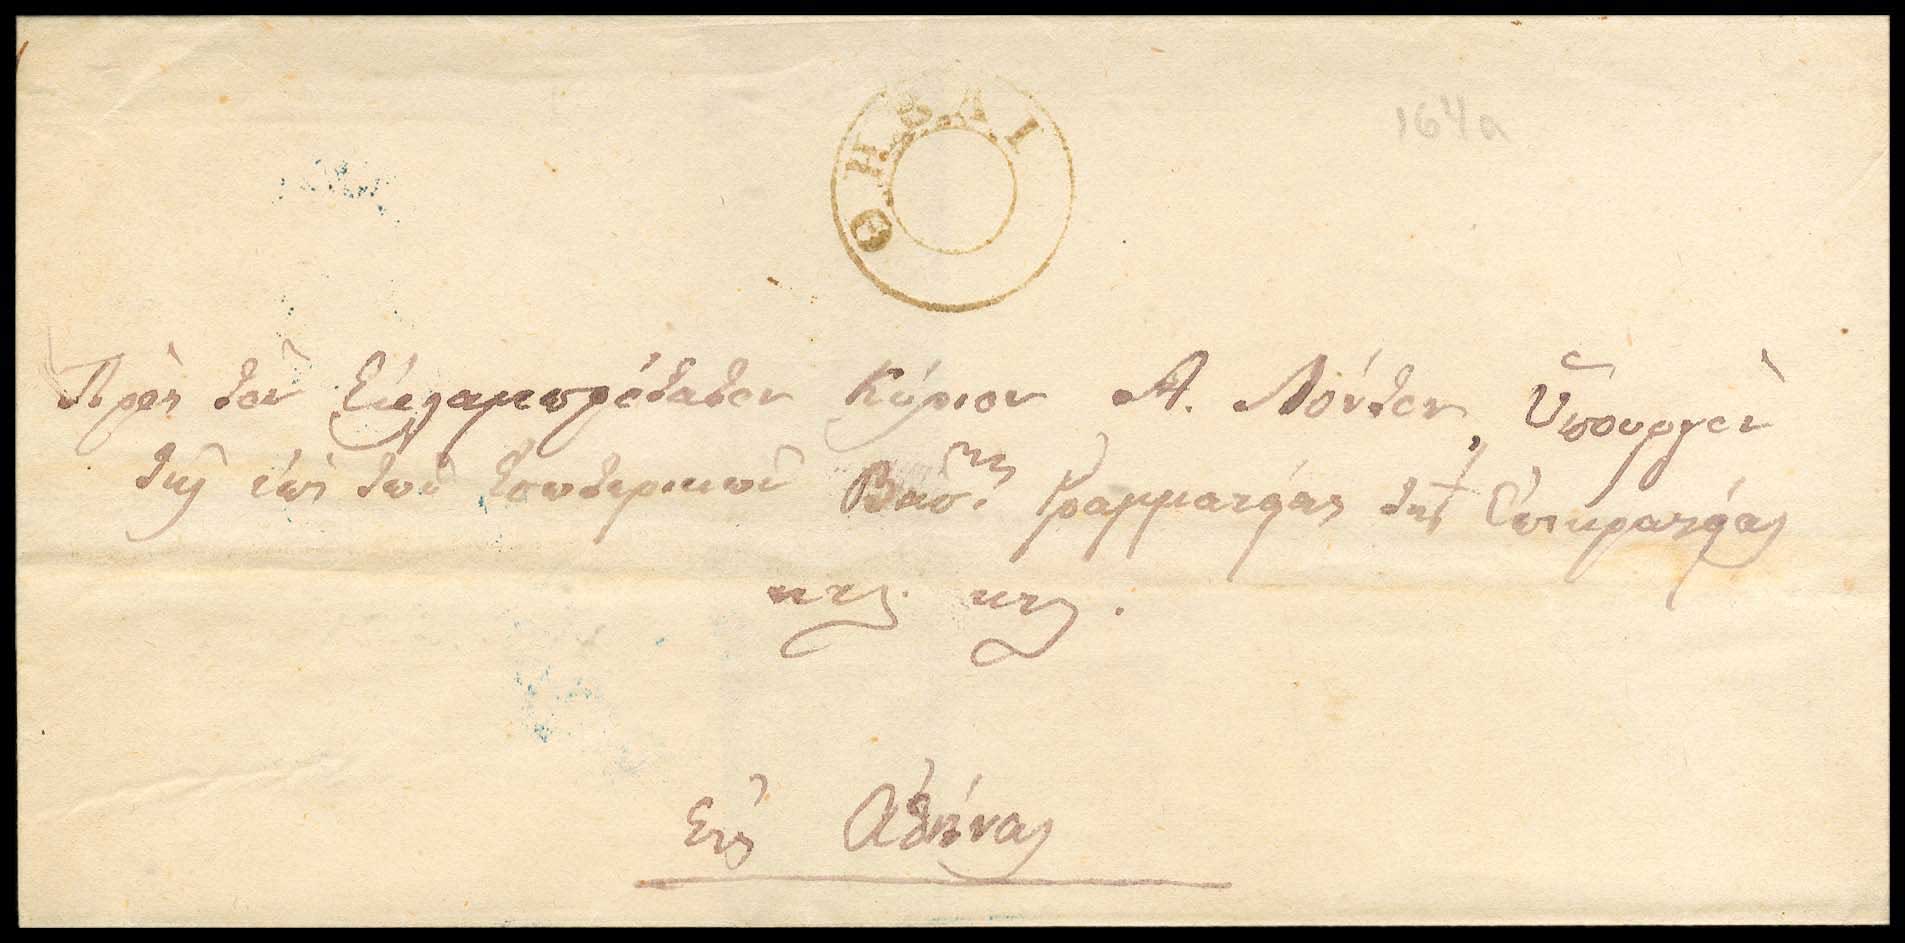 ΘΗΒΑΙ
164a
Πρὸς τὸν Ἐκλαμπρότατον Κύριον Α. Λόντον, Ὑπουργὸν
τῆς ἐπὶ τοῦ Ἐσωτερικοῦ Βασ.κῆς Γραμματείας τῆς Ἐπικρατείας
κτλ. κτλ.
Εἰς Ἀθήνας